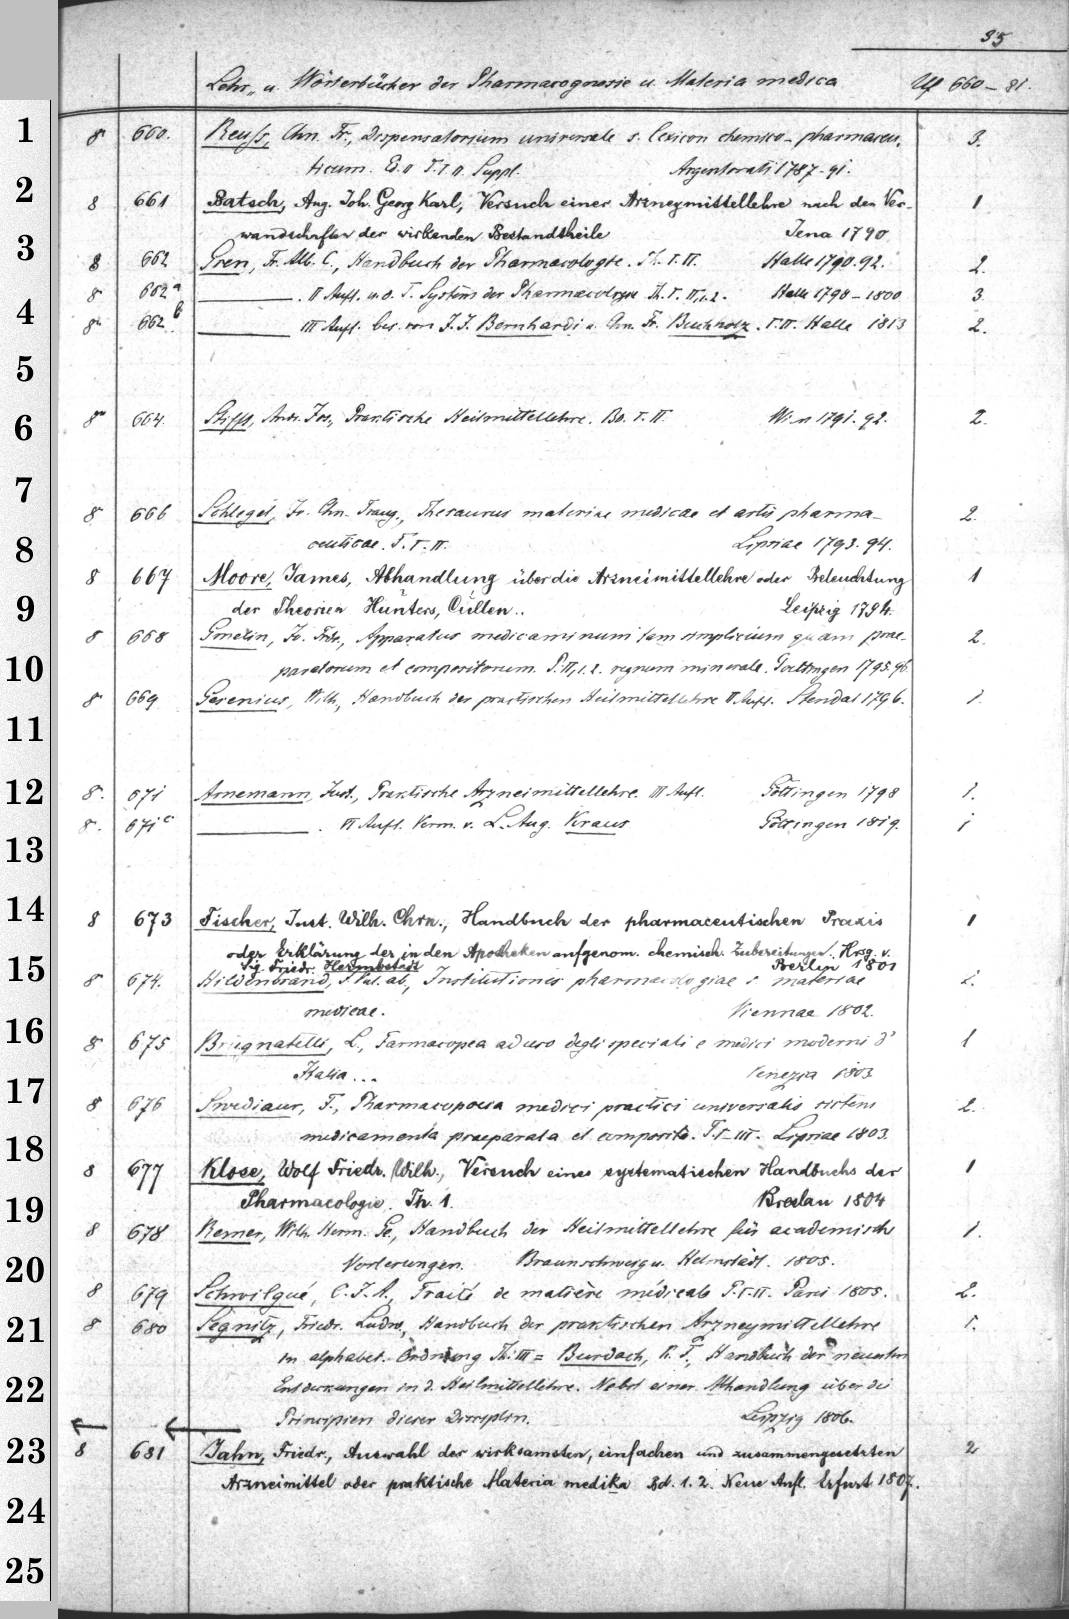 35
Lehr- u. Wörterbücher der Pharmacognosie u. Materia medica Uf 660-81.
1
8 660. Reuss, Chn. Fr., Dispensatorium universale s. lexicon chemico-pharmaceu- 3.
ticum. Ed. II T. I. II. Suppl. Argentorati 1787-91.
2
8 661 Batsch, Aug. Joh. Georg Karl, Versuch einer Arzneymittellehre nach den Ver- 1
wandschaften der wirkenden Bestandtheile Jena 1790
3
8 662 Gren, Fr. Alb. C., Handbuch der Pharmacologie. Th. I. II. Halle 1790. 92. 2.
8 662a ——. II Aufl. u. d. T. System der Pharmacologie Th. I. II, 1.2. Halle 1798-1800 3
4
8 662b —— III Aufl. bes. von J. J. Bernhardi u. Chn. Fr. Buchholz. I. II. Halle 1813 2.
5
6
8 664. Stifft, Andr. Jos., Praktische Heilmittellehre. Bd. I. II. Wien 1791. 92. 2.
7
8 666 Schlegel, Jo. Chn. Traug., Thesaurus materiae medicae et artis pharma- 2.
8
ceuticae. T. I. II. Lipsiae 1793. 94.
8 667 Moore, James, Abhandlung über die Arzneimittellehre oder Beleuchtung 1
9
der Theorien Hunters, Cullen.. Leipzig 1794.
8 668 Gmelin, Jo. Frdr., Apparatus medicaminum tam simplicium quam prae- 2.
10
paratorum et compositorum. P. II, 1.2. regnum minerale. Goettingen 1795. 96.
8 669 Gesenius, Wilh., Handbuch der practischen Heilmittellehre II Aufl. Stendal 1796. 1.
11
12
8. 671 Arnemann, Just., Praktische Arzneimittellehre. III Aufl. Göttingen 1798 1.
8. 671c ——. VI Aufl. Verm. v. L. Aug. Kraus Göttingen 1819. 1
13
14
8 673 Fischer, Just. Wilh. Chrn., Handbuch der pharmaceutischen Praxis 1
oder Erklärung der in den Apotheken aufgenom. chemisch. Zubereitungen. Hrsg. v.
15
Sig. Friedr. Hermbstädt Berlin 1801
8 674. Hildenbrand, J. Val. ab, Institutiones pharmacologiae s. materiae
medicae. Viennae 1802.
16
8 675 Brugnatelli, L., Farmacopea ad uso degli speciali e medici moderni d' 1
Italia... Venezia 1803
17
8 676 Swediaur, F., Pharmacopoea medici practici universalis sistens 2.
18
medicamenta praeparata et composita. T. I-III. Lipsiae 1803.
8 677 Klose, Wolf Friedr. Wilh., Versuch eines systematischen Handbuchs der 1
19
Pharmacologie. Th. 1. Breslau 1804
8 678 Remer, Wilh. Herm. Ge., Handbuch der Heilmittellehre für academische 1.
20
Vorlesungen. Braunschweig u. Helmstädt. 1805.
8 679 Schwilgué, C. J. A., Traité de matière médicale T. I-II. Paris 1805. 2.
21
8 680 Segnitz, Friedr. Ludw., Handbuch der praktischen Arzneymittellehre 1.
in alphabet. Ordnung Th. III = Burdach, K. F., Handbuch der neuesten
22
Entdeckungen in d. Heilmittellehre. Nebst einer Abhandlung über die
Principien dieser Disciplin. Leipzig 1806.
23
8 681 Jahn, Friedr., Auswahl der wirksamsten, einfachen und zusammengesetzten 2
Arzneimittel oder praktische Materia medika Bd. 1. 2. Neue Aufl. Erfurt 1807.
24
25